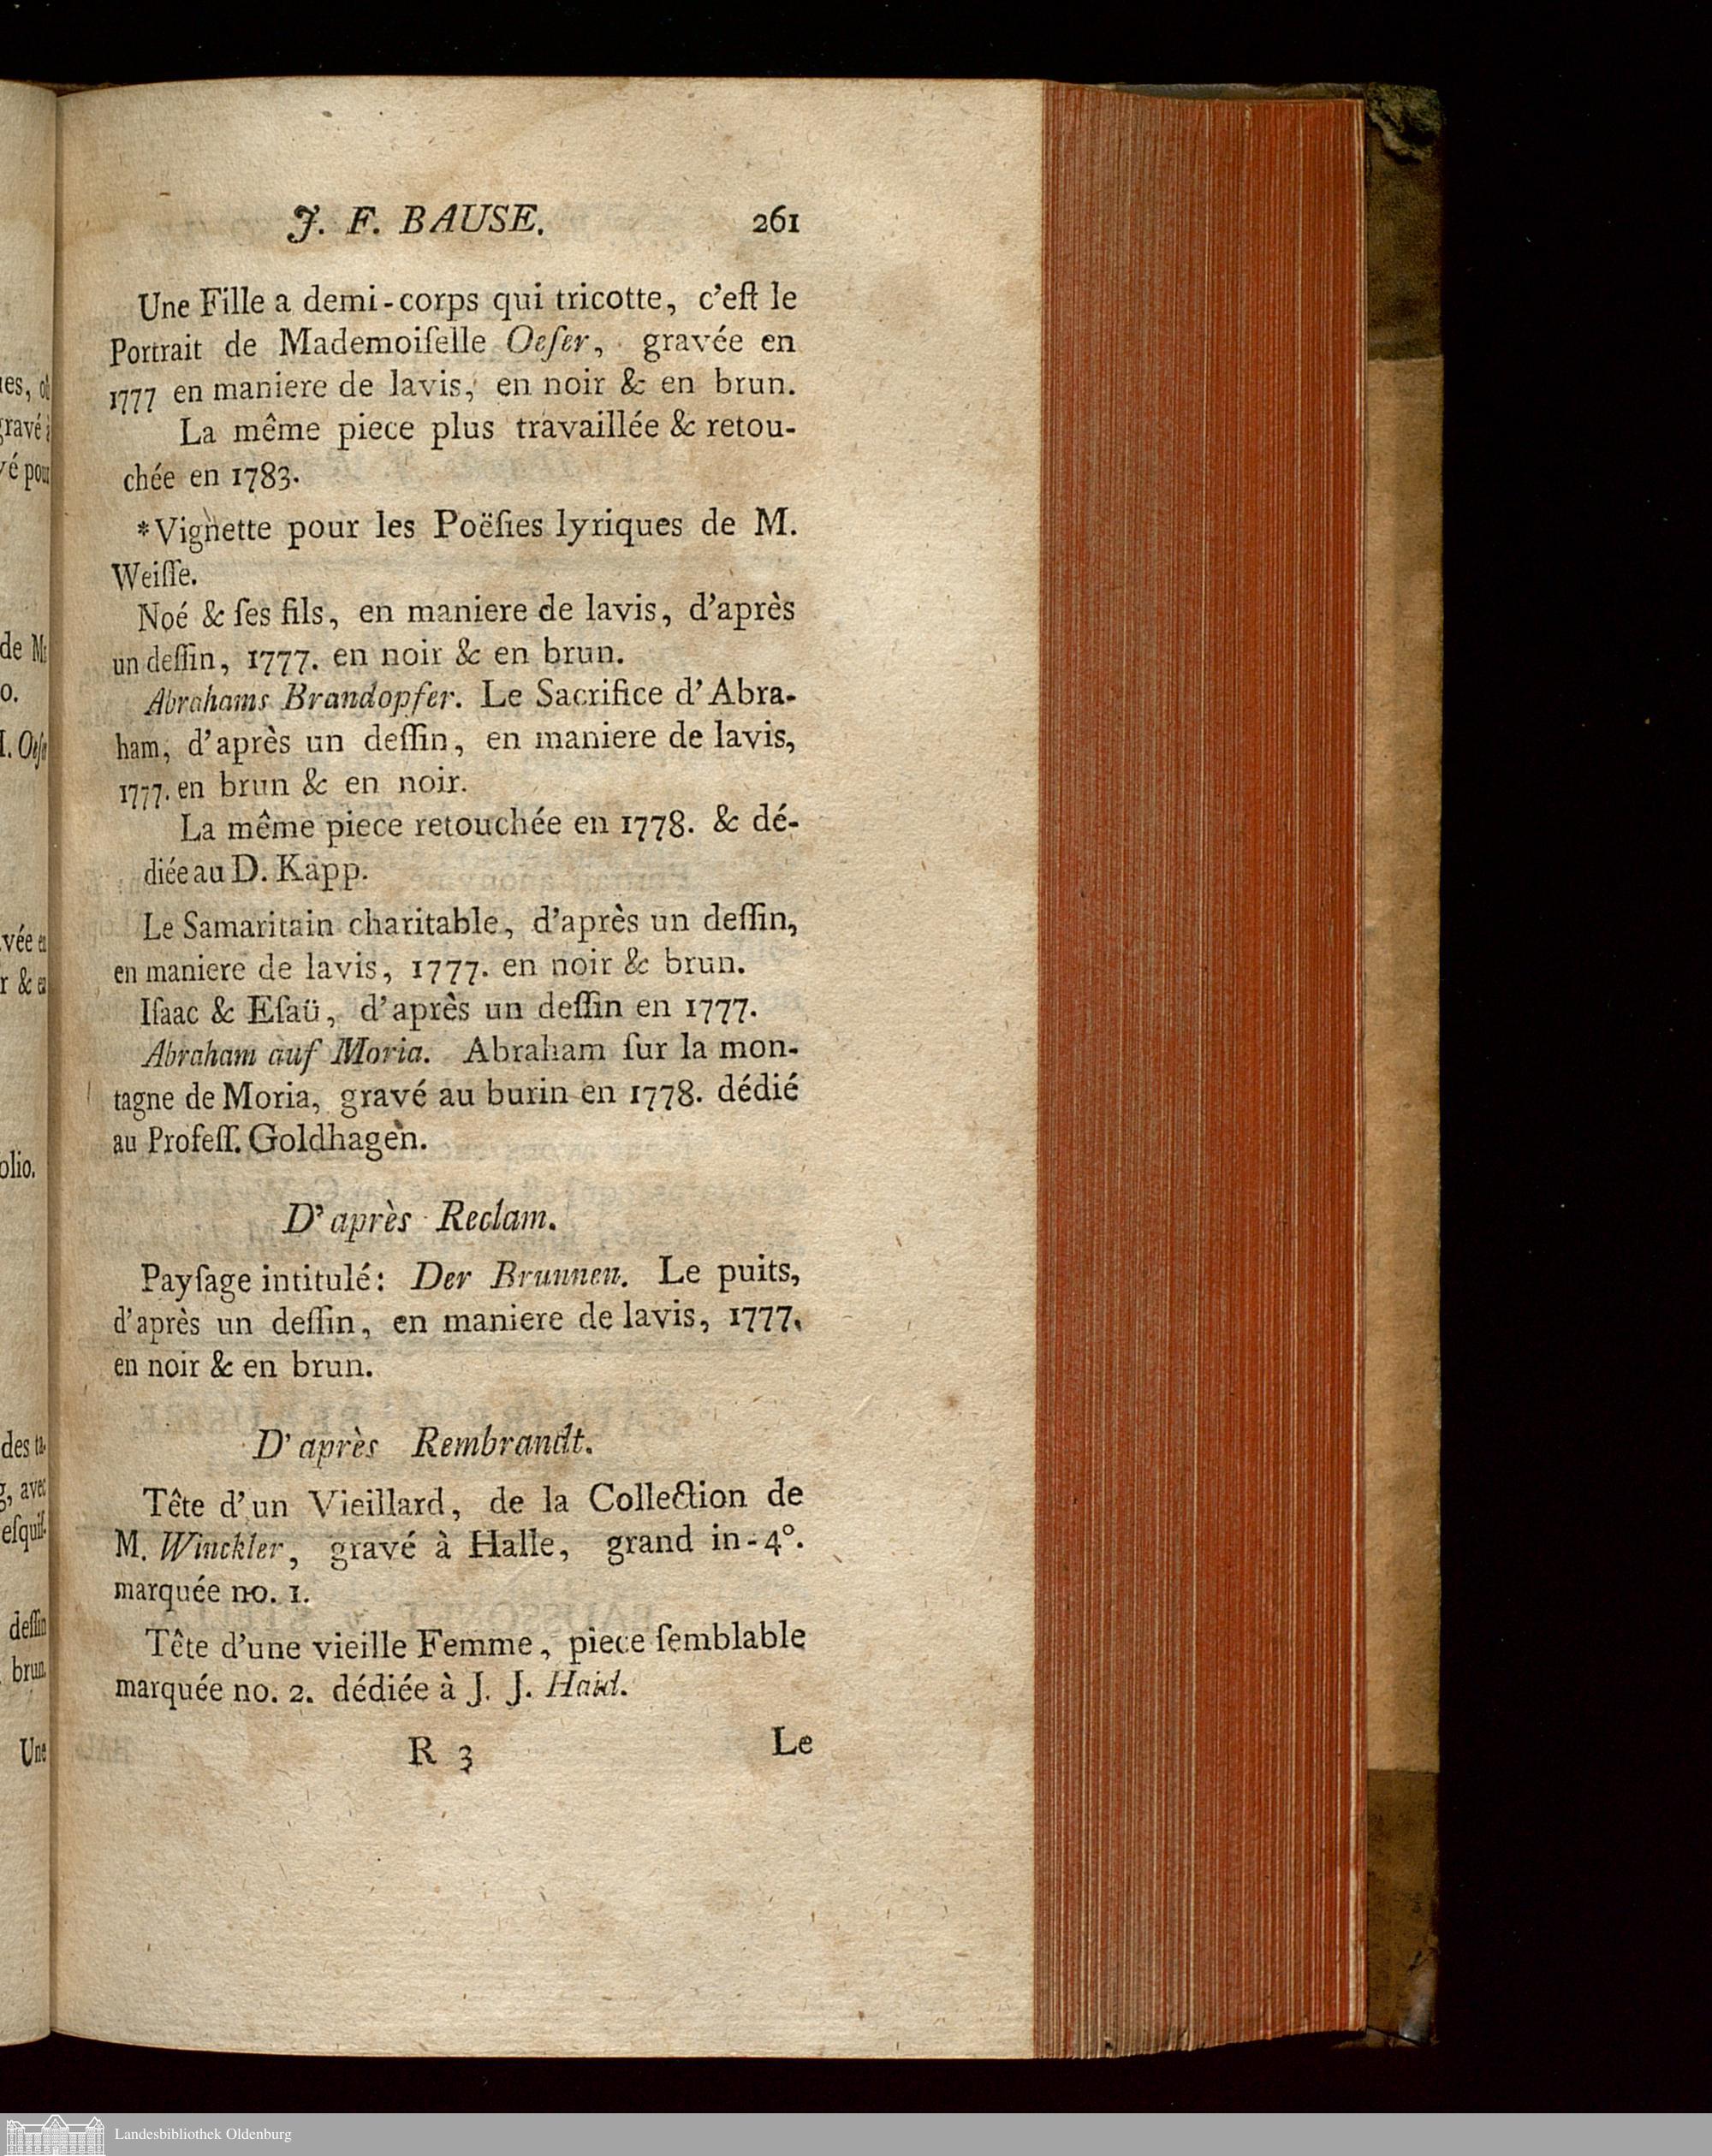 J. F. BAUSE. 261
Une Fille a demi-corps qui tricotte, c'eſt le
Portrait de Mademoiſelle Oeſer, gravée en
1777 en maniere de lavis, en noir & en brun.
La même piece plus travaillée & retou-
chée en 1783.
*Vignette pour les Poëſies lyriques de M.
Weiſſe.
Noé & ſes fils, en maniere de lavis, d'après
un deſſin, 1777. en noir & en brun.
Abrahams Brandopfer. Le Sacrifice d'Abra-
ham, d'après un deſſin, en maniere de lavis,
1777. en brun & en noir.
La même piece retouchée en 1778. & dé-
diée au D. Kapp.
Le Samaritain charitable, d'après un deſſin,
en maniere de lavis, 1777. en noir & brun.
Iſaac & Eſaü, d'après un deſſin en 1777.
Abraham auf Moria. Abraham ſur la mon-
tagne de Moria, gravé au burin en 1778. dédié
au Profeſſ. Goldhagen.
D'après Reclam.
Payſage intitulé: Der Brunnen. Le puits,
d'après un deſſin, en maniere de lavis, 1777.
en noir & en brun.
D'après Rembrandt.
Tête d'un Vieillard, de la Collection de
M. Winckler, gravé à Halle, grand in-4°.
marquée no. 1.
Tête d'une vieille Femme, piece ſemblable
marquée no. 2. dédiée à J. J. Haid.
R 3 Le
de M.
o.
olio.
deſſin
brun.
Une
Landesbibliothek Oldenburg